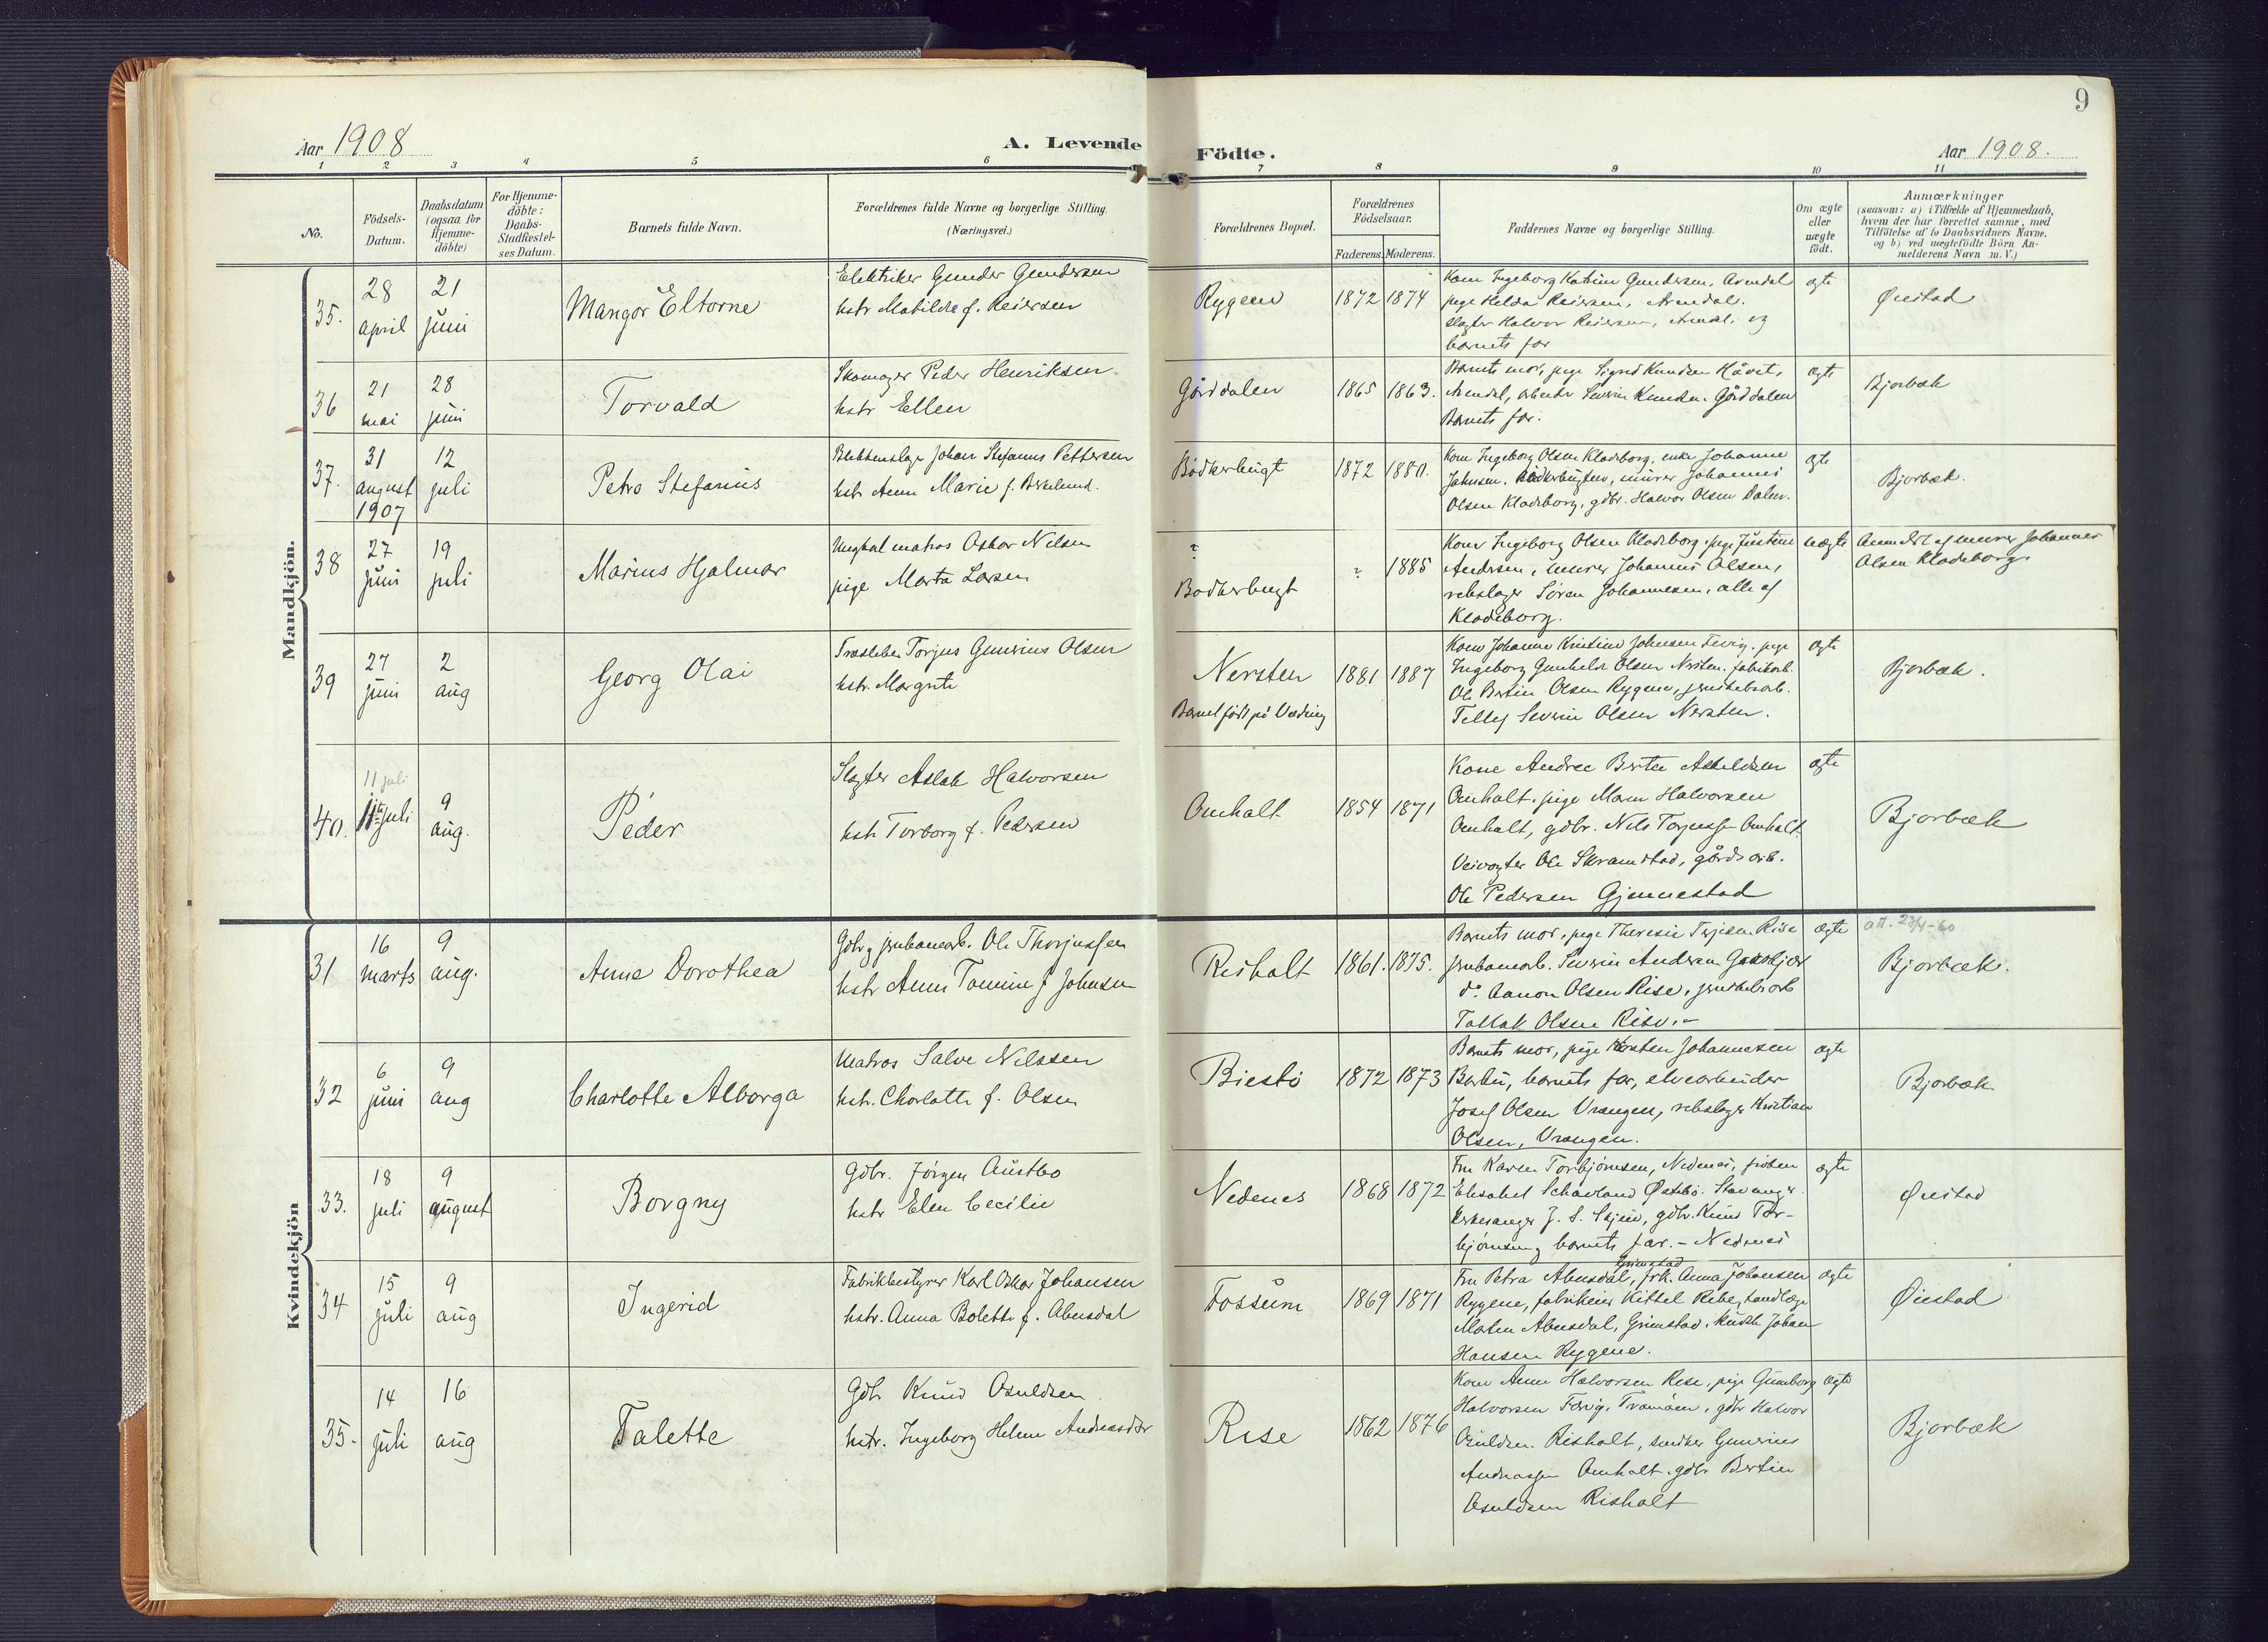 9
Aar 1908
A. Levende
Födte.
Aar 1908.
1 2 3 4 5 6 7 8 9 10 11
No.
Födsels-
Datum.
Daabsdatum
(ogsaa for
Hjemme-
döbte)
For Hjemme-
döbte:
Daabs-
Stadfæstel-
ses Datum.
Barnets fulde Navn.
Forældrenes fulde Navne og borgerlige Stilling.
(Næringsvei.)
Forældrenes Bopæl.
Forældrenes
Födselsaar.
Faderens. Moderens.
Faddernes Navne og borgerlige Stilling.
Om ægte
eller
uægte
födt.
Anmærkninger
(saasom: a) i Tilfælde af Hjemmedaab,
hvem der har forrettet samme, med
Tilföielse af to Daabsvidners Navne,
og b) ved uægtefödte Börn An-
melderens Navn m. V.)
Mandkjön.
35.
28
april
21
juni
Mangor Eltorne
Elektriker Gunder Gundersen
hstr Matilde f. Reiersen
Rygene
1872 1874
Kone Ingeborg Katrine Gundersen, Arendal
pige Helda Reiersen, Arendal.
slagter Halvor Reiersen, Arendal, og
barnets far
ægte
Øiestad
36
21
mai
28
juni
Torvald
Skomager Peder Henriksen
hstr Ellen
Gårddalen
1865 1863.
Barnets mor, pige Sigrid Knudsen Håvet,
Arendal, arbeider Severin Knudsen Gårddalen
Barnets far.
ægte
Bjorbæk
37.
31
august
1907
12
juli
Petro Stefanius
Blikkenslager Johan Stefanus Pettersen
hstr Anne Marie f. Birkelund.
Bödkerbugt
1872 1880.
Kone Ingeborg Olsen Kladeborg, enke Johanne
Johnsen, Bödkerbugten, murer Johannes
Olsen Kladeborg, gdbr. Halvor Olsen Dalen.
ægte
Bjorbæk.
38
27
juni
19
juli
Marius Hjalmar
Ungkal matros Oskar Nilsen
pige Marta Larsen
?
Bödkerbugt
? 1885
Kone Ingeborg Olsen Kladeborg, pige Justine
Andersen, murer Johannes Olsen,
rebslager Sören Johannesen, alle af
Kladeborg.
uægte
Anmeldt af murer Johannes
Olsen Kladeborg.
39
27
juni
2
aug
Georg Olai
Træsliber Torjus Gunerius Olsen
hstr. Margrite
Nersten
Barnet født på Vedring
1881 1887
Kone Johanne Kristine Johnsen Fevig, pige
Ingeborg Gunhilde Olsen Nersten, fabrikarb.
Ole Bertin Olsen Rygene, jernstøbarb.
Tellef Severin Olsen Nersten.
ægte
Bjorbæk.
40.
11 juli
11te juli
9
aug.
Peder
Slagter Aslak Halvorsen
hstr Torborg f. Pedersen
Omholt
1854 1871
Kone Andrea Berte Askeldsen
Omholt, pige Maren Halvorsen
Omholt, gdbr. Nils Torjussen Omholt
Veivogter Ole Skramstad, gårdsarb.
Ole Pedersen Gjennestad
ægte
Bjorbæk
Kvindekjön
31
16
marts
9
aug.
Anne Dorothea
Gdbr og jernbanearb. Ole Thorjussen
hstr Anne Tomine f Johnsen
Risholt
1861. 1875.
Barnets mor, pige Theresie Terjesen Rise
jernbanearb. Severin Andersen Gaaskjær
do Aanon Olsen Rise, jernstøbarb
Tallak Olsen Rise.-
ægte
att. 23/4-60
Bjorbæk.
32
6
juni
9
aug
Charlotte Alborga
Matros Salve Nilssen
hstr. Charlotte f. Olsen
Biestö
1872 1873
Barnets mor, pige Karsten Johannesen
Barbu, barnets far, elvearbeider
Josef Olsen Vrængen, rebslager Kristian
Olsen, Vrængen.
ægte
Bjorbæk
33.
18
juli
9
august
Borgny
Gdbr. Jörgen Austbo
hstr Elen Cecilie
Nedenes
1868 1872
Fru Karen Torbjörnsen, Nedenes, frøken
Elisabet Schavland Østbö. Stavanger
kirkesanger J. S. Skjeie, gdbr. Knud Tor-
björnsen og barnets far.- Nedenes
ægte
Øiestad
34
15
juli
9
aug
Ingerid
Fabrikbestyrer Karl Oskar Johansen
hstr. Anna Bolette f. Abusdal
Fossum
1869 1871
Grimstad
Fru Petra Abusdal, frk. Anna Johansen
Rygene, fabrikeier Kittel Ribe, tandlæge
Morten Abusdal, Grimstad, kusk Johan
Hansen Rygene.
ægte
Øiestad
35.
14
juli
16
aug
Talette
Gdbr Knud Osuldsen
hstr. Ingeborg Helene Andreasdtr
Rise
1862 1876
Kone Anne Halvorsen Rise, pige Gunborg
Halvorsen Færvig, Tromöen, gdbr Halvor
Osuldsen Risholt, snedker Gunerius
Andreassen Omholt, gdbr Bertin
Osuldsen Risholt
ægte
Bjorbæk